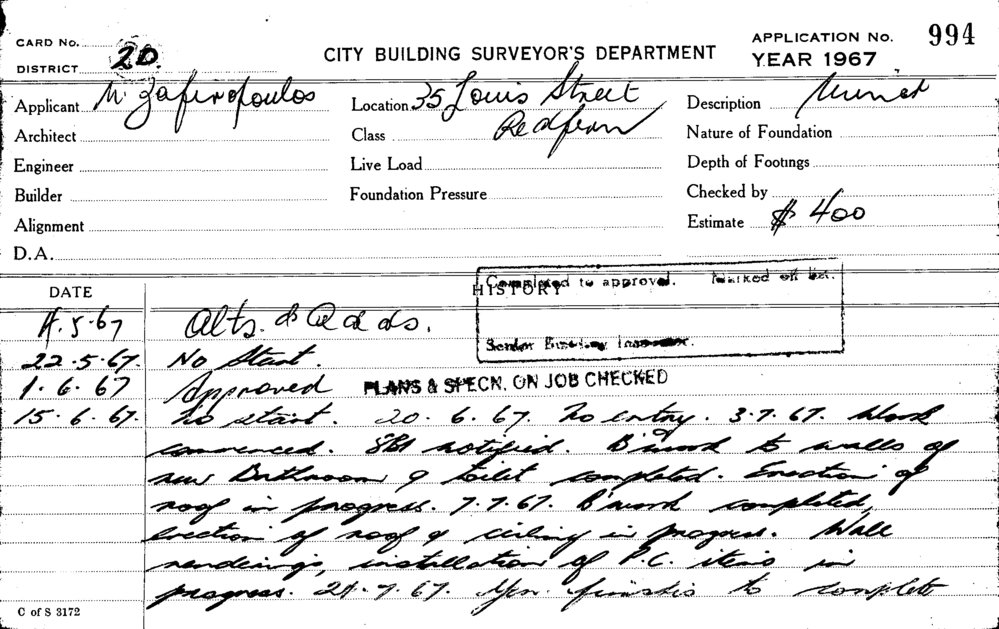 CARD No.
DISTRICT 20.
CITY BUILDING SURVEYOR'S DEPARTMENT
APPLICATION No. 994
YEAR 1967
Applicant N. Zafiropoulos
Location 35 Louis Street
Redfern
Description
Architect
Class
Nature of Foundation
Engineer
Live Load
Depth of Footings
Builder
Foundation Pressure
Checked by
Alignment
Estimate $ 400
D.A.
Completed to approval. Marked off list.
Senior Building Inspector.
DATE
HISTORY
5.67 Alts. & Adds.
22.5.67. No Start.
1.6.67 Approved PLANS & SPECN. ON JOB CHECKED
15.6.67. No start. 20.6.67. No entry. 3.7.67. Work
commenced. SBI notified. B'work to walls of
new Bathroom & toilet completed. Erection of
roof in progress. 7.7.67. B'work completed,
erection of roof & ceiling in progress. Wall
renderings, installation of P.C. items in
progress. 7.67. Gen. finishes to complete
C of S 3172